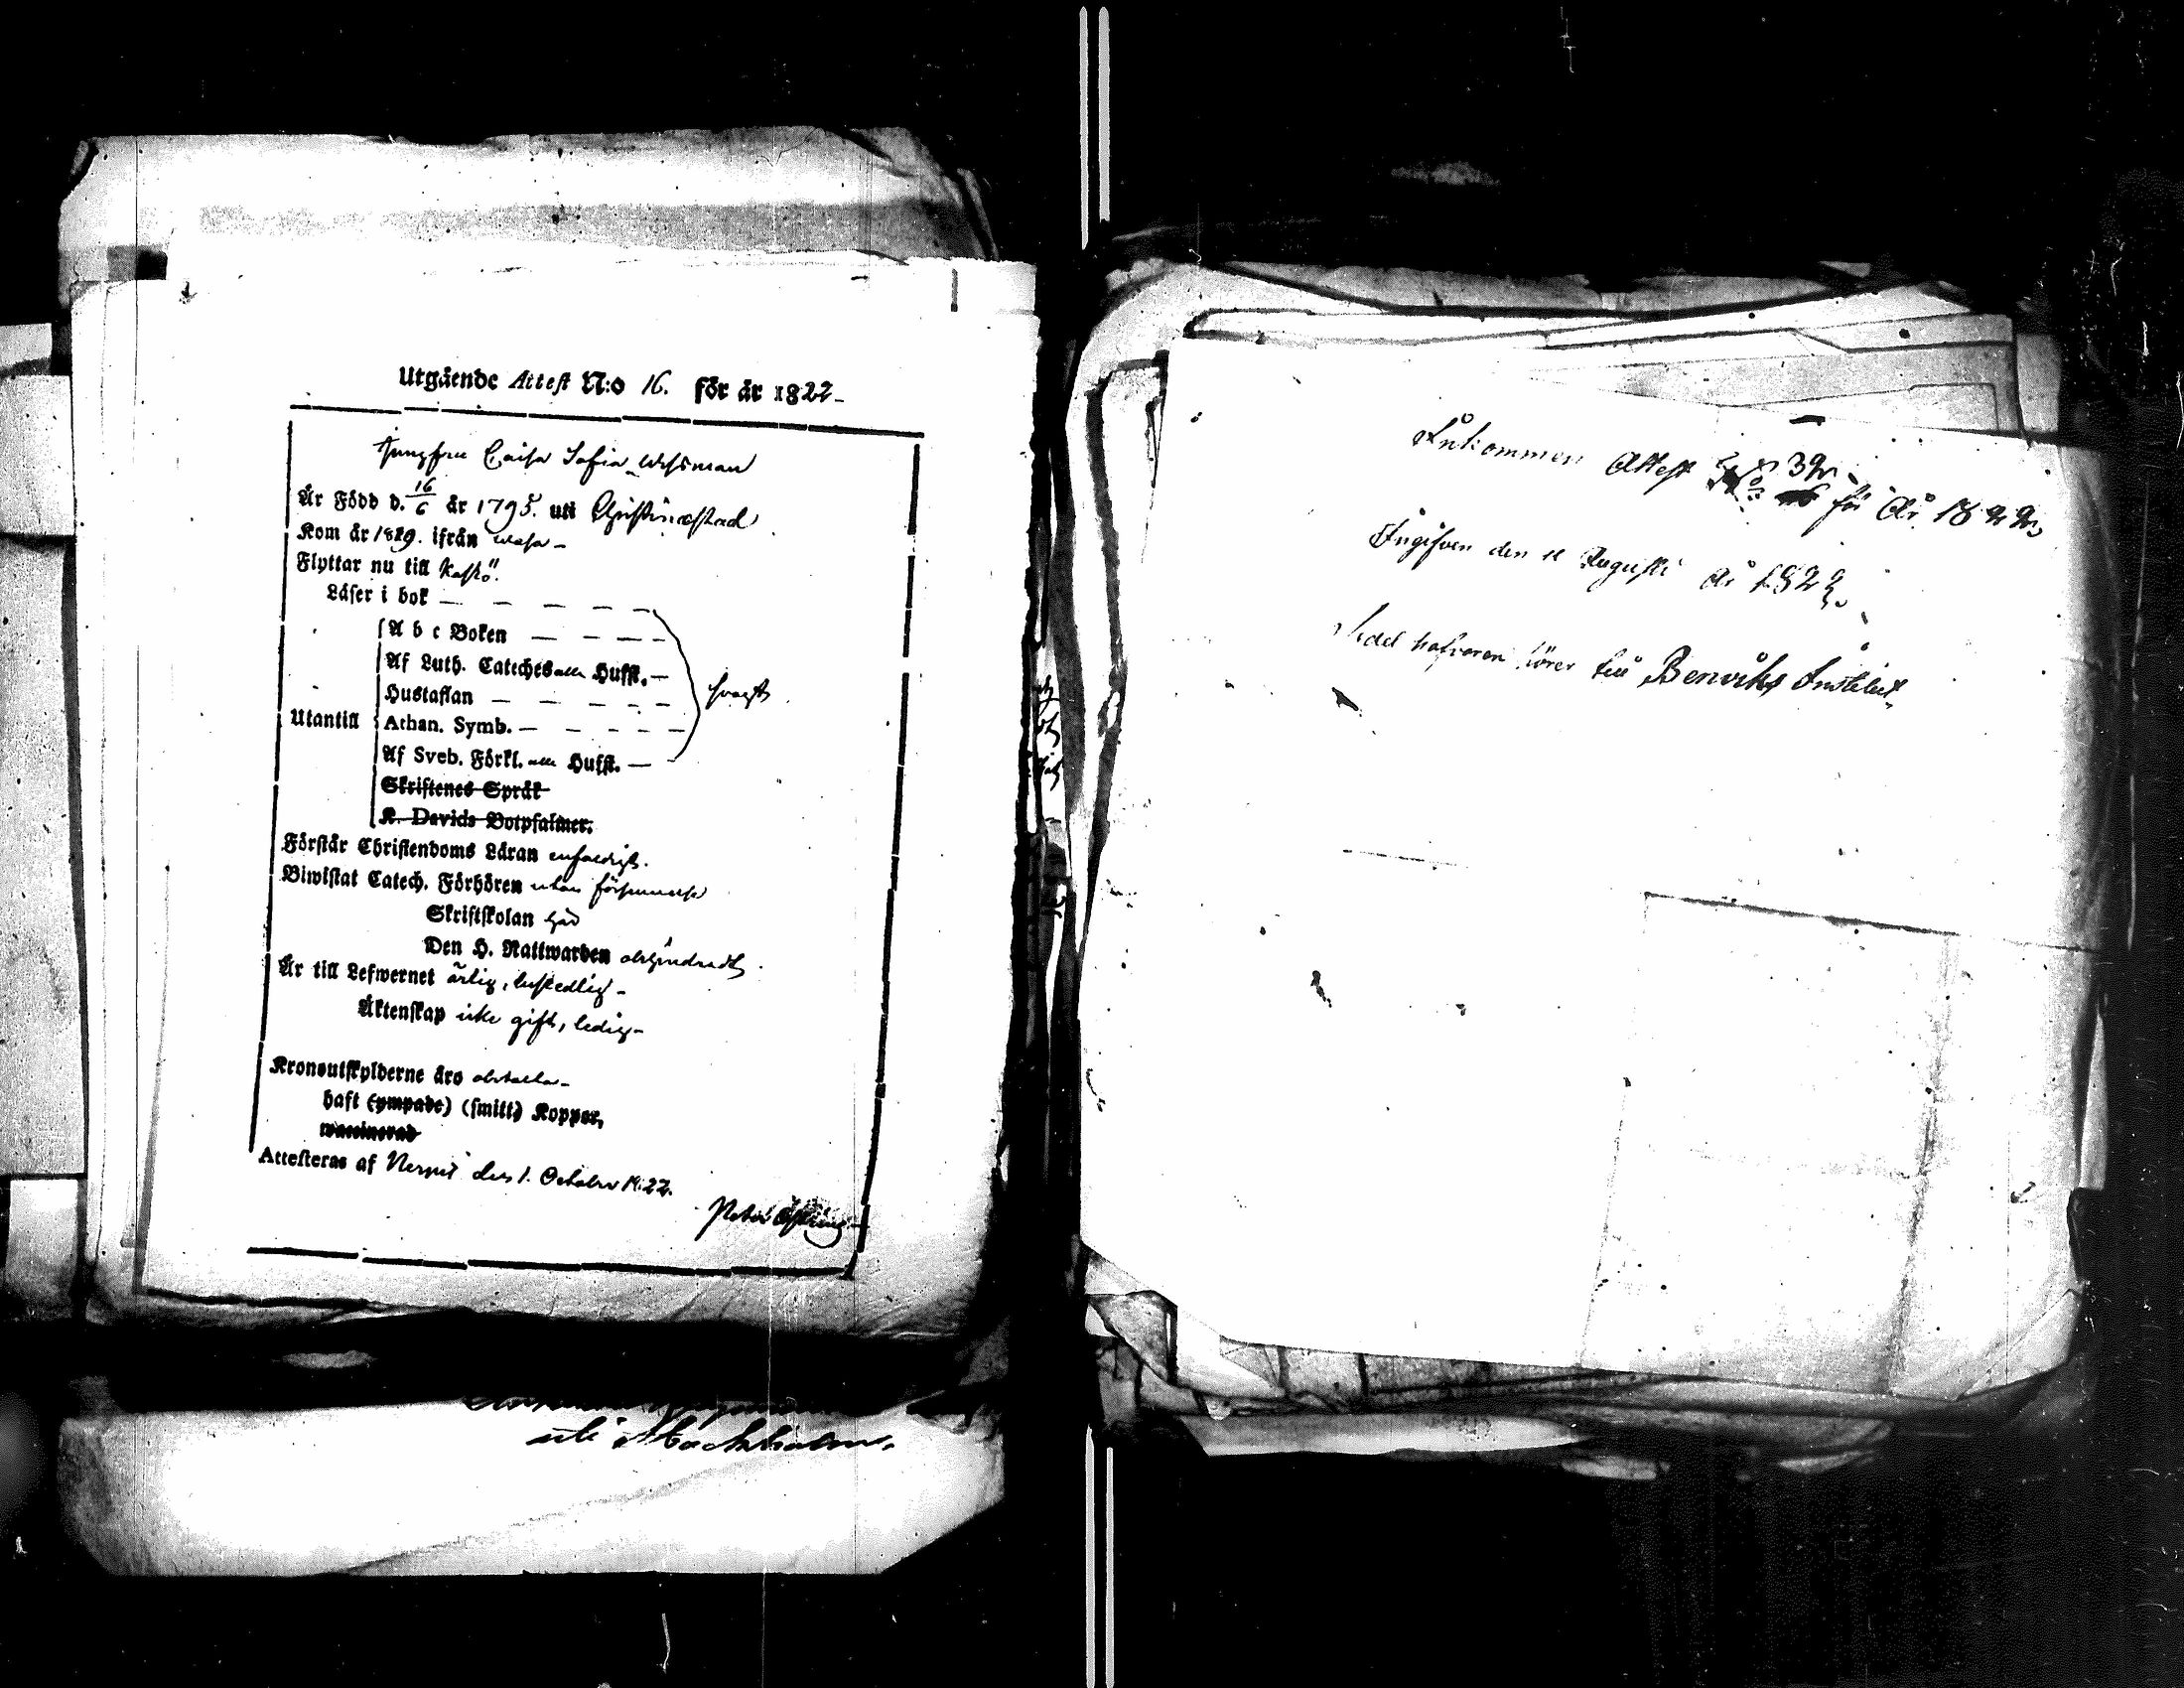 Utgående Attest N:o 16. för år 1822
Jungfru Caisa Sofia Wessman
Är Född d. 16/6 år 1795. uti Christinæstad
Kom år 1819. ifrån Wasa
Flyttar nu till Kaskö.
Läser i bok
A b c Boken
Af Luth. Cateches alla Hufst.
Hustaflan
svagt
Utantill
Athan. Symb.
Af Sveb. Förkl. alla Hufst.
Skriftenes Språk
K. Davids Botpsalmer.
Förstår Christendoms Läran enfaldigt.
Biwistat Catech. Förhören utan försummelse
Skriftskolan
Den H. Nattwarden obehindradt
Är till Lefwernet ärlig,
Äktenskap icke gift, ledig
Kronoutskylderne äro betalta
haft (ympade) (smitt) Koppor,
waccinerad
Attesteras af Nerpes den 1. October 1822.
Peter
uti Stockholm.
Inkommen Attest N:o 32
för År 1822
Ingifven den 11 Augusti År 1822.
Sedel hafvaren hörer till Benviks Institut.